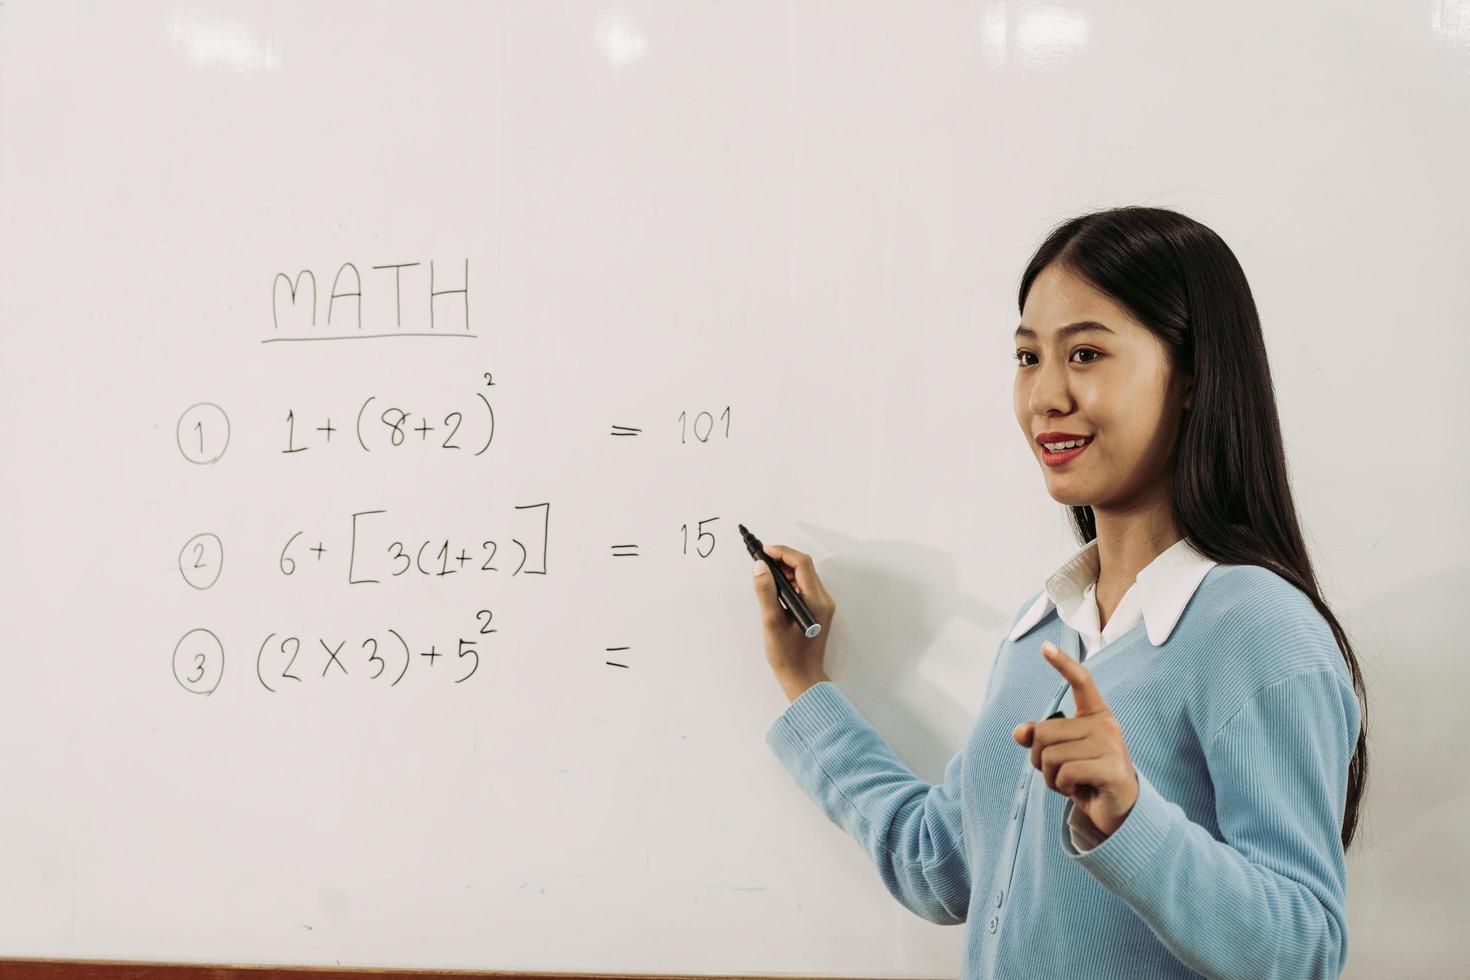 MATH
① 1+(8+2)² = 101
② 6+[3(1+2)] = 15
③ (2×3)+5² =